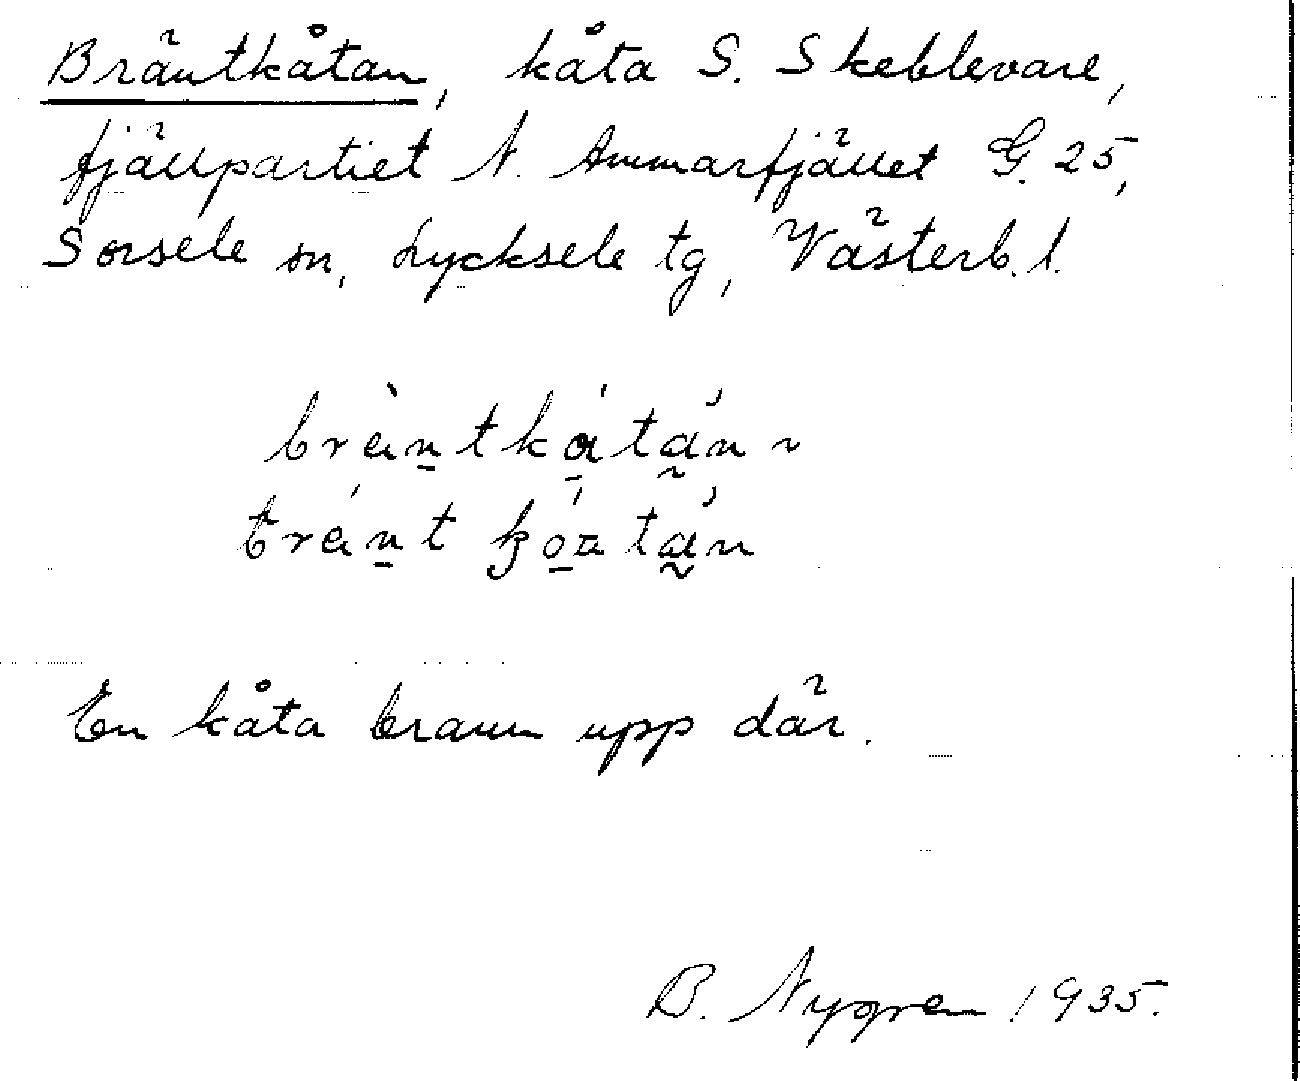 Bräntkåtan, kåta S. Skeblevare,
fjällpartiet N. Ammarfjället G. 25,
Sorsele sn, Lycksele tg, Västerb. l.
brèntkátán ~
brént kóatán
En kåta brann upp där.
B. Nygren 1935.